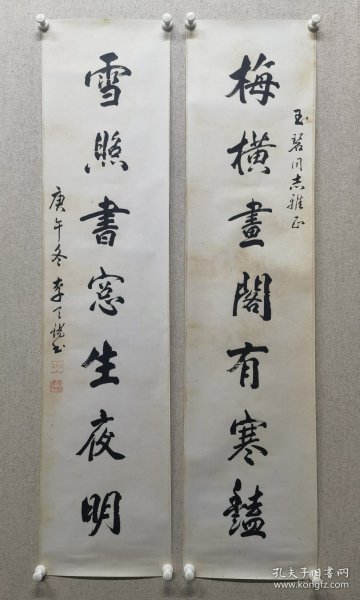 梅橫畫閣有寒
同志雅正
雪照書窓生夜明
庚午冬 李
孔夫子旧书网
www.kongfz.com